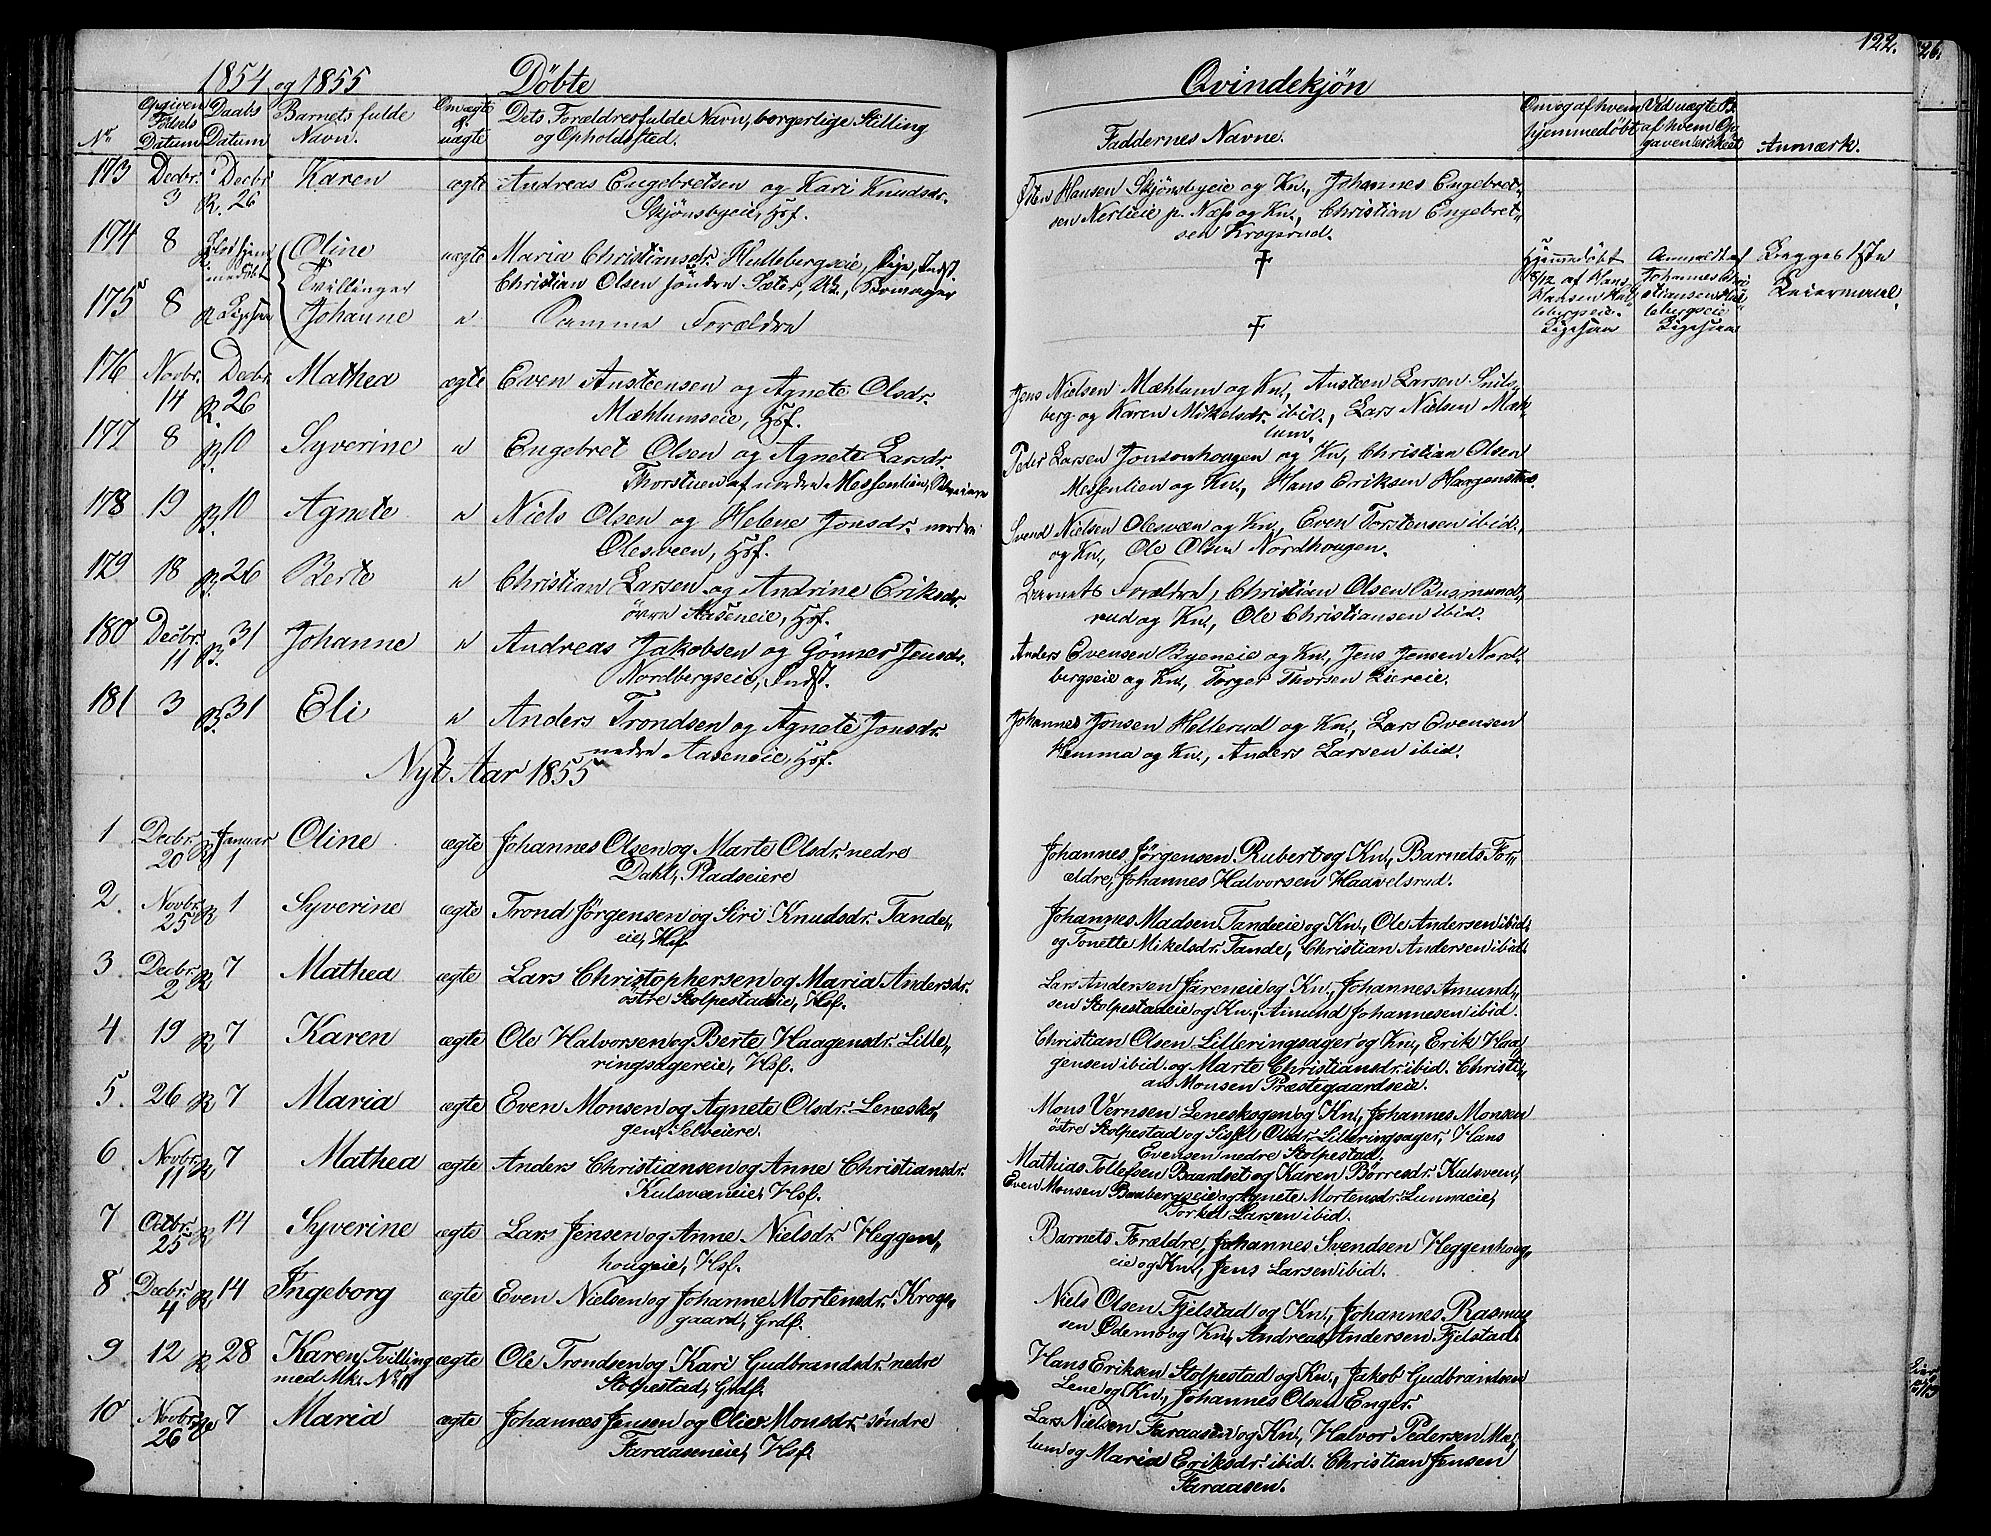 122.
26.
1854 og 1855 Döbte Qvindekjön
No Opgiven Fötsels Datum Daabs Datum Barnets fulde Navn. Om ægte el. uægte Dets Forældres fulde Navn, borgerlige Stilling og Opholdssted. Faddernes Navne. Om og af hvem hjemmedöbt Ved uægte B. af hvem Opgaven er skeet Anmærk.
173 Decbr. 3 Decbr. R. 26 Karen ægte Andreas Engebretsen og Kari Knudsdr.
Skjönsbyeie, Hsf.
Östen Hansen Skjönsbyeie og Kn., Johannes Engebret-
sen Nerlieie p. Næs og Kn., Christian Engebret-
sen Krogsrud.
174 8 Oline uægte Maria Christiansdr. Hullebergseie, Pige, Indst.
Tvillinger Christian Olsen söndre Sæter, Uk.,
Hjemmedöbt 8/12 af Hans Hansen Hullebergseie. Anmeldt af Johannes Christiansen Hullebergseie Begges 1ste Leiermaal
175 8 R. Ligesaa Johanne " Samme Forældre Ligesaa Ligesaa
176 Novbr. 14 Decbr. R. 26 Mathea ægte Even Austeensen og Agnete Olsdr.
Mæhlumseie, Hsf.
Jens Nielsen Mæhlum og Kn., Austeen Larsen Snils-
berg og Karen Mikelsdr. ibid., Lars Nielsen Mæh-
lum.
177 8 R. 10 Syverine " Engebret Olsen og Agnete Larsdr.
Thorstuen af nordre Messenlien,
Peder Larsen Jonsonhougen og Kn., Christian Olsen
Messenlien og Kn., Hans Eriksen Haugenstad.
178 19 R. 10 Agnete " Niels Olsen og Helene Jonsdr. nordre
Olesveen, Hsf.
Svend Nielsen Olesvæn og Kn., Even Torstensen ibid.
og Kn., Ole Olsen Nordhougen.
179 18 R. 26 Berte " Christian Larsen og Andrine Eriksdr.
övre Aaseneie, Hsf.
Barnets Forældre, Christian Olsen Bugmund-
rud og Kn., Ole Christiansen ibid.
180 Decbr. 11 R. 31 Johanne " Andreas Jakobsen og Gönner Jensdr.
Nordbergseie, Indst.
Anders Evensen Byeneie og Kn., Jens Jensen Nord-
bergseie og Kn., Torger Thorsen Liereie.
181 3 R. 31 Eli " Anders Trondsen og Agnete Jonsdr.
nedre Aaseneie, Hsf.
Johannes Jonsen Hellerud og Kn., Lars Evensen
Hemma og Kn., Anders Larsen ibid.
Nyt Aar 1855
1 Decbr. 20 Januar R 1 Oline ægte Johannes Olsen og Marte Olsdr. nedre
Dahl, Pladseiere
Johannes Jörgensen Rubert og Kn., Barnets For-
ældre, Johannes Halvorsen Hadvelsrud.
2. Novbr. 25 R 1 Syverine ægte Trond Jörgensen og Siri Knudsdr. Tande-
eie, Hsf.
Johannes Madsen Tandeeie og Kn., Ole Andersen ibid.
og Tonette Mikelsdr. Tande, Christian Andersen ibid.
3 Decbr. 2 R 7 Mathea ægte Lars Christophersen og Maria Andersdr.
östre Stolpestadeie, Hsf.
Lars Andersen Jareneie og Kn., Johannes Amund-
sen Stolpestadeie og Kn., Amund Johannesen ibid.
4. 19 R 7 Karen ægte Ole Halvorsen og Berte Haagensdr. Lille-
ringsagereie, Hsf.
Christian Olsen Lilleringsager og Kn., Erik Haa-
gensen ibid. og Marte Christiansdr. ibid. Christi-
an Monsen Præstegaardseie.
5. 26 R 7 Maria ægte Even Monsen og Agnete Olsdr. Lenesko-
gen, Selveiere.
Mons Vernsen Leneskogen og Kn., Johannes Monsen
östre Stolpestad og Sissel Olsdr. Lilleringsager, Hans
Evensen nedre Stolpestad.
6 Novbr. 11 R 7 Mathea ægte Anders Christiansen og Anne Christiansdr.
Kulsvæneie, Hsf.
Mathias Tollefsen Baardset og Karen Börresdr. Kulsveen,
Even Monsen Baabergseie og Agnete Mortensdr. Lunnaeie,
Torkel Larsen ibid.
7 Octbr. 25 R 14 Syverine ægte Lars Jensen og Anne Nielsdr. Heggen-
hougeie, Hsf.
Barnets Forældre, Johannes Svendsen Heggenhoug-
eie og Kn., Jens Larsen ibid.
8 Decbr. 4 R 14 Ingeborg ægte Even Nielsen og Johanne Mortensdr. Krogs-
gaard, Grdf.
Niels Olsen Fjelstad og Kn., Johannes Rasmus-
sen Ödemo og Kn., Andreas Andersen Fjelstad.
9 12 R 28 Karen, Tvilling ægte Ole Trondsen og Kari Gudbrandsdr. nedre
med Mk. No 11 Stolpestad, Grdf.
Hans Eriksen Stolpestad og Kn., Jakob Gudbrandsen
Lene og Kn., Johannes Olsen Enger.
10 Novbr. 26 7 Maria ægte Johannes Jensen og Olia Monsdr. söndre
Faraaseneie, Hsf.
Lars Nielsen Faraasen og Kn., Halvor Pedersen Mæ-
lum og Maria Eriksdr. ibid. Christian Jensen
Faraasen.